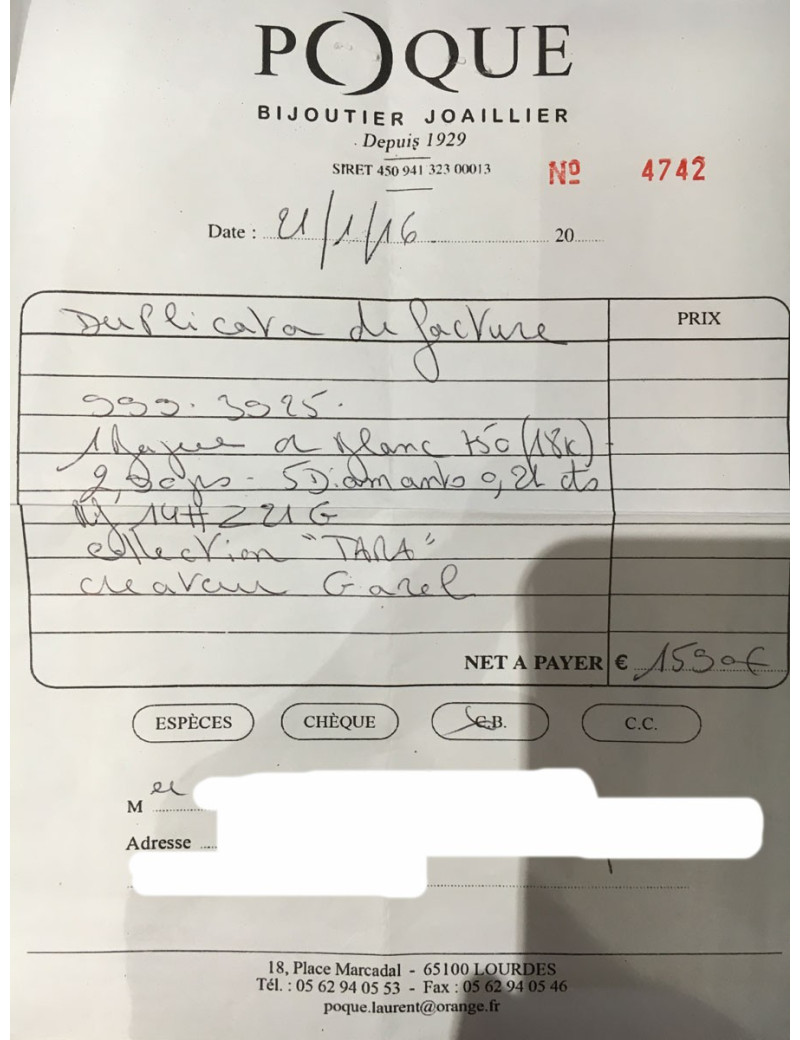 POQUE
BIJOUTIER JOAILLIER
Depuis 1929
SIRET 450 941 323 00013
Nº 4742
Date : 21/1/16 20
Duplicata de facture
PRIX
999.3925.
1 Bague or blanc 750 (18k)
5 Diamants 0,21 cts
collection "TARA"
createur Garel
NET A PAYER € 1590€
ESPÈCES CHÈQUE C.B. C.C.
M
Adresse
18, Place Marcadal - 65100 LOURDES
Tél. : 05 62 94 05 53 - Fax : 05 62 94 05 46
poque.laurent@orange.fr